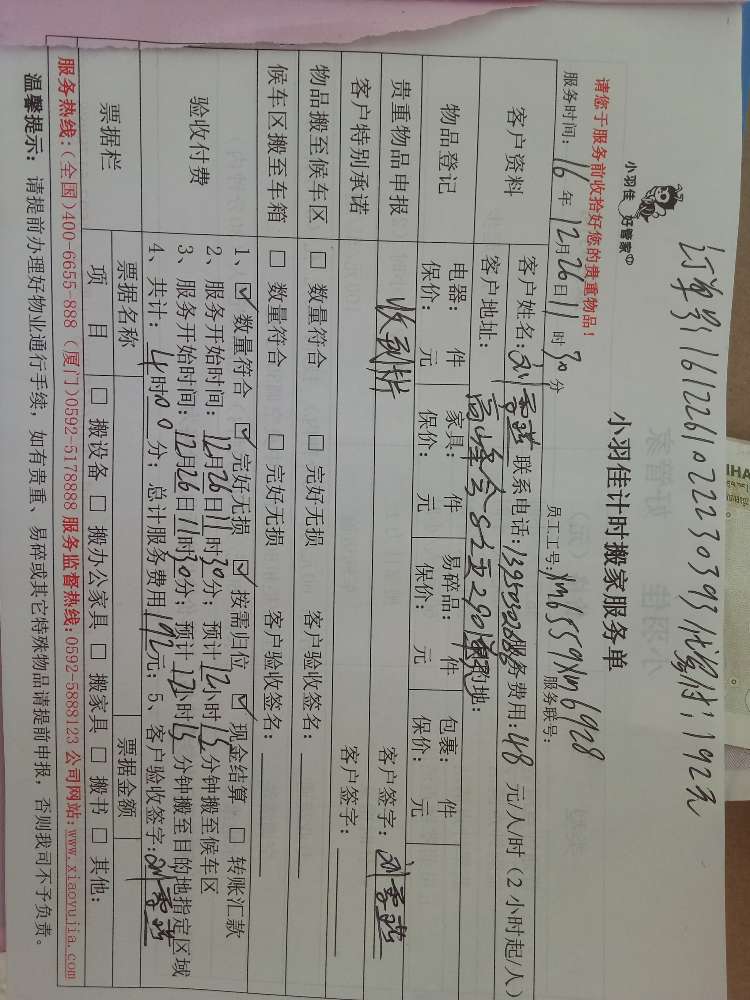 订单号:161226102223039 优惠付:192元
小羽佳 好管家
小羽佳计时搬家服务单
请您于服务前收拾好您的贵重物品!
员工工号:xm6559 xm6928
服务时间:16年12月26日11时30分
服务联号:
客户资料
客户姓名: 联系电话: 服务费用:48元/人/时(2小时起/人)
客户地址: 目的地:
物品登记
电器: 件 家具: 件 易碎品: 件 包裹: 件
保价: 元 保价: 元 保价: 元 保价: 元
贵重物品申报 收到 客户签字:
客户特别承诺 客户签字:
物品搬至候车区 □ 数量符合 □ 完好无损 客户验收签名:
候车区搬至车箱 □ 数量符合 □ 完好无损 客户验收签名:
验收付费
1、☑ 数量符合 ☑ 完好无损 ☑ 按需归位 ☑ 现金结算 □ 转账汇款
2、服务开始时间:12月26日11时30分;预计12小时15分钟搬至候车区
3、服务开始时间:12月26日11时30分;预计12小时15分钟搬至目的地指定区域
4、共计:4时00分;总计服务费用192元;5、客户验收签字:
票据栏
票据名称 票据金额
项 目 □ 搬设备 □ 搬办公家具 □ 搬家具 □ 搬书 □ 其他:
服务热线:(全国)400-6655-888 (厦门)0592-5178888 服务监督热线:0592-5888123 公司网站:www.xiaoyujia.com
温馨提示: 请提前办理好物业通行手续,如有贵重、易碎或其它特殊物品请提前申报,否则我司不予负责。